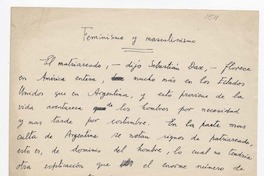 Feminismo y masculinismo
El matriarcado, — dijo Sebastián Dax, — florece
en América entera, mucho más en los Estados
Unidos que en Argentina, y esto proviene de la
vida aventurera de los hombres por necesidad
y mas tarde por costumbre. En la parte mas
culta de Argentina se notan signos de patriarcado,
esto es, de dominio del hombre, lo cual no tendría
otra explicación que el enorme número de